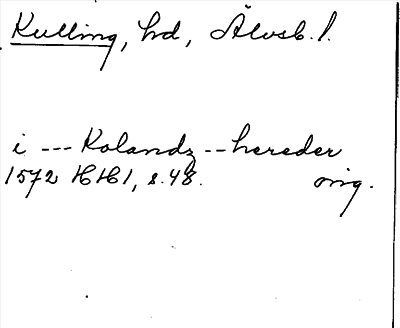 Kulling, hd, Älvsb. l.
i --- Kolandz -- hereder
1572 HH1, s. 48. orig.